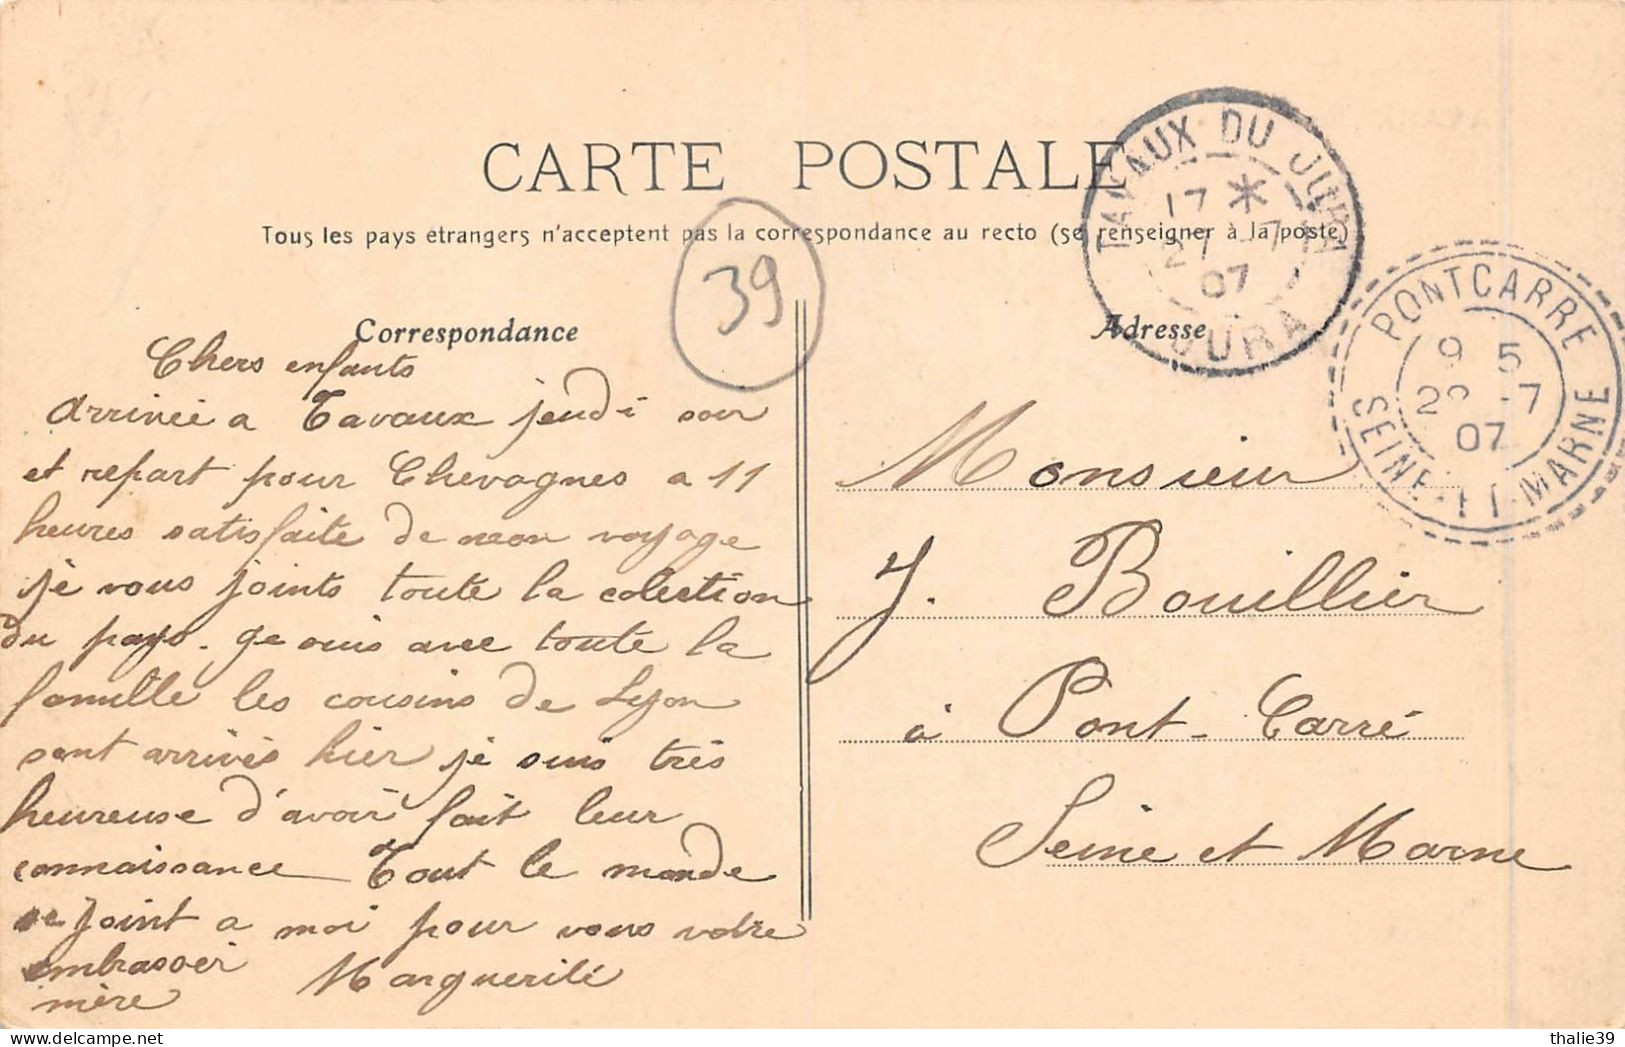 CARTE POSTALE
Tous les pays étrangers n'acceptent pas la correspondance au recto (se renseigner à la poste)
39
TAVAUX DU JURA
17 *
27 -7
07
JURA
PONTCARRE
9 5
28 -7
07
SEINE-ET-MARNE
Correspondance
Chers enfants
Arrivée a Tavaux jeudi soir
et repart pour Chevagnes a 11
heures satisfaite de mon voyage
je vous joints toute la colection
du pays. Je suis avec toute la
famille les cousins de Lyon
sont arrivés hier je suis très
heureuse d'avoir fait leur
connaissance Tout le monde
se joint a moi pour vous
embrasser votre
mère Marguerite
Adresse
Monsieur
J. Bouillier
à Pont-Carré
Seine et Marne
delcampe.net
thalie39